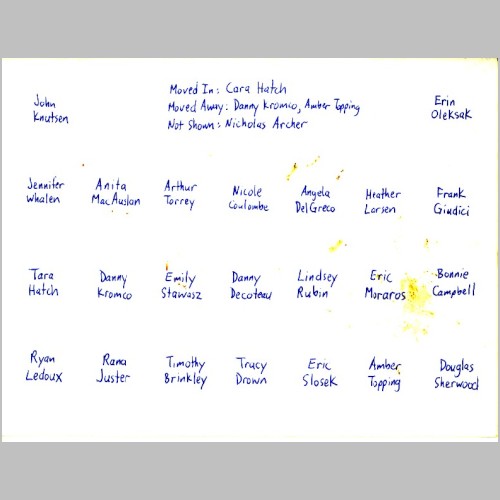 John Knutsen
Moved In: Cara Hatch
Moved Away: Danny Kromco, Amber Topping
Not Shown: Nicholas Archer
Erin Oleksak
Jennifer Anita Arthur Nicole Angela Heather Frank
Whalen MacAuslan Torrey Coulombe DelGreco Larsen Giudici
Tara Danny Emily Danny Lindsey Eric Bonnie
Hatch Kromco Stawasz Decoteau Rubin Moraros Campbell
Ryan Rana Timothy Tracy Eric Amber Douglas
Ledoux Juster Brinkley Drown Slosek Topping Sherwood